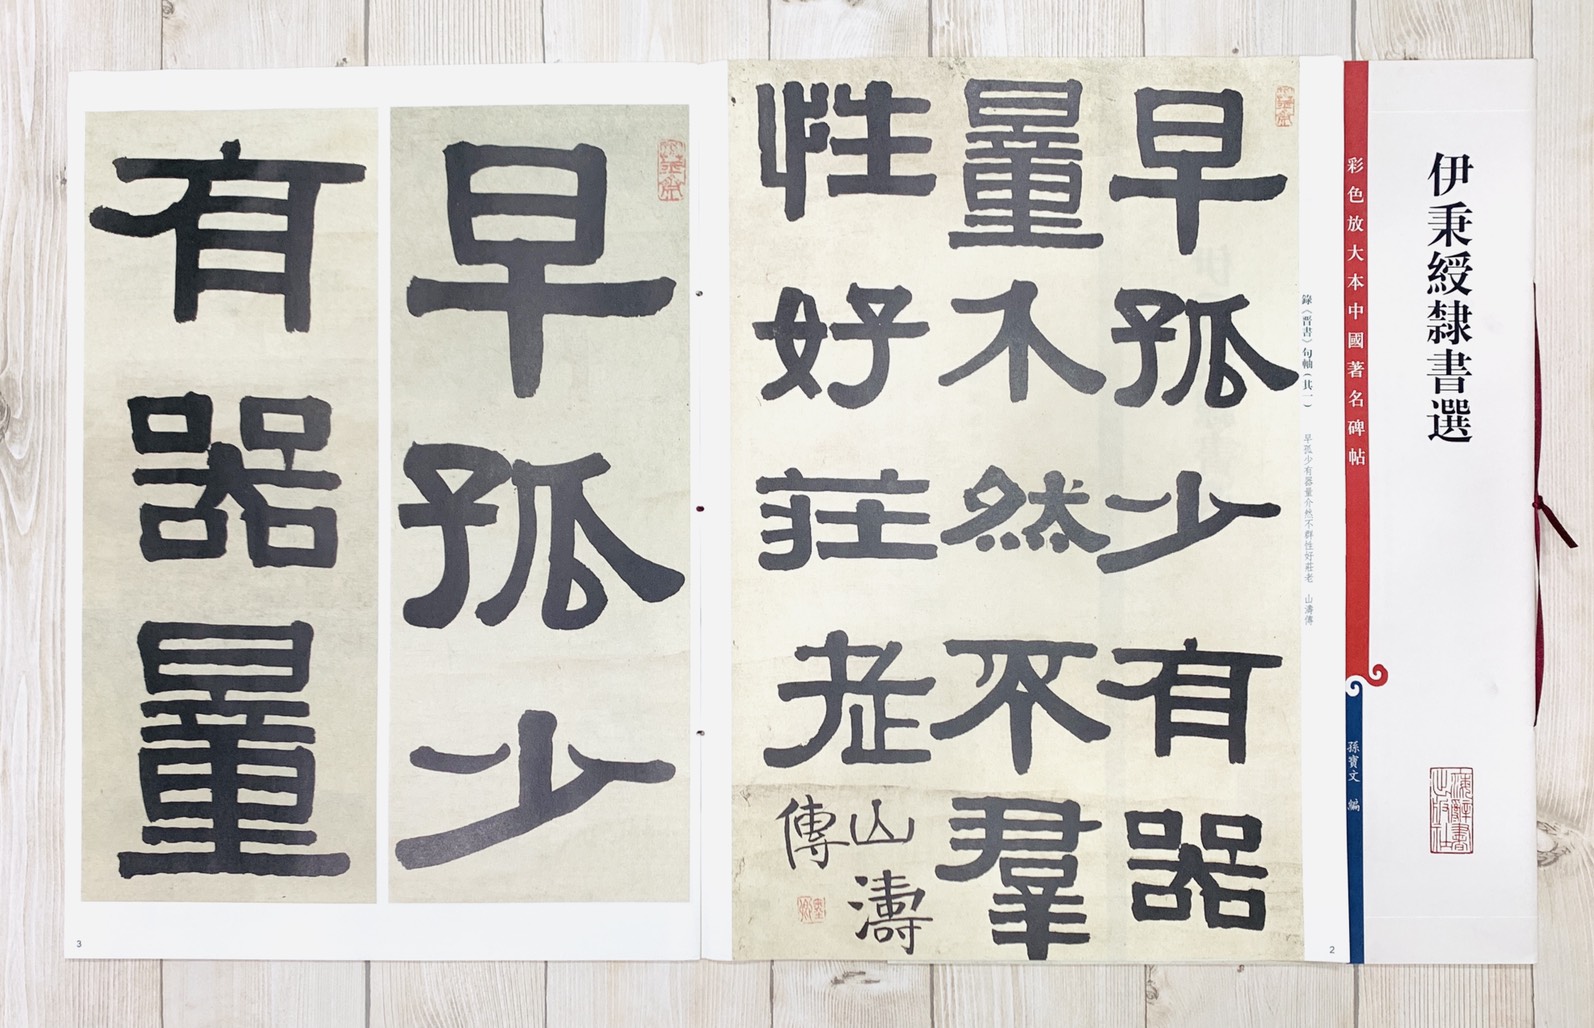 伊秉綬隸書選
彩色放大本中國著名碑帖
孫寶文 編
上海辭書出版社
錄《晋書》句軸(其一)
早孤少有器量介然不群性好莊老 山濤傳
早孤少有器
量介然不羣
性好莊老
山濤
傳
2
早孤少
有器量
3